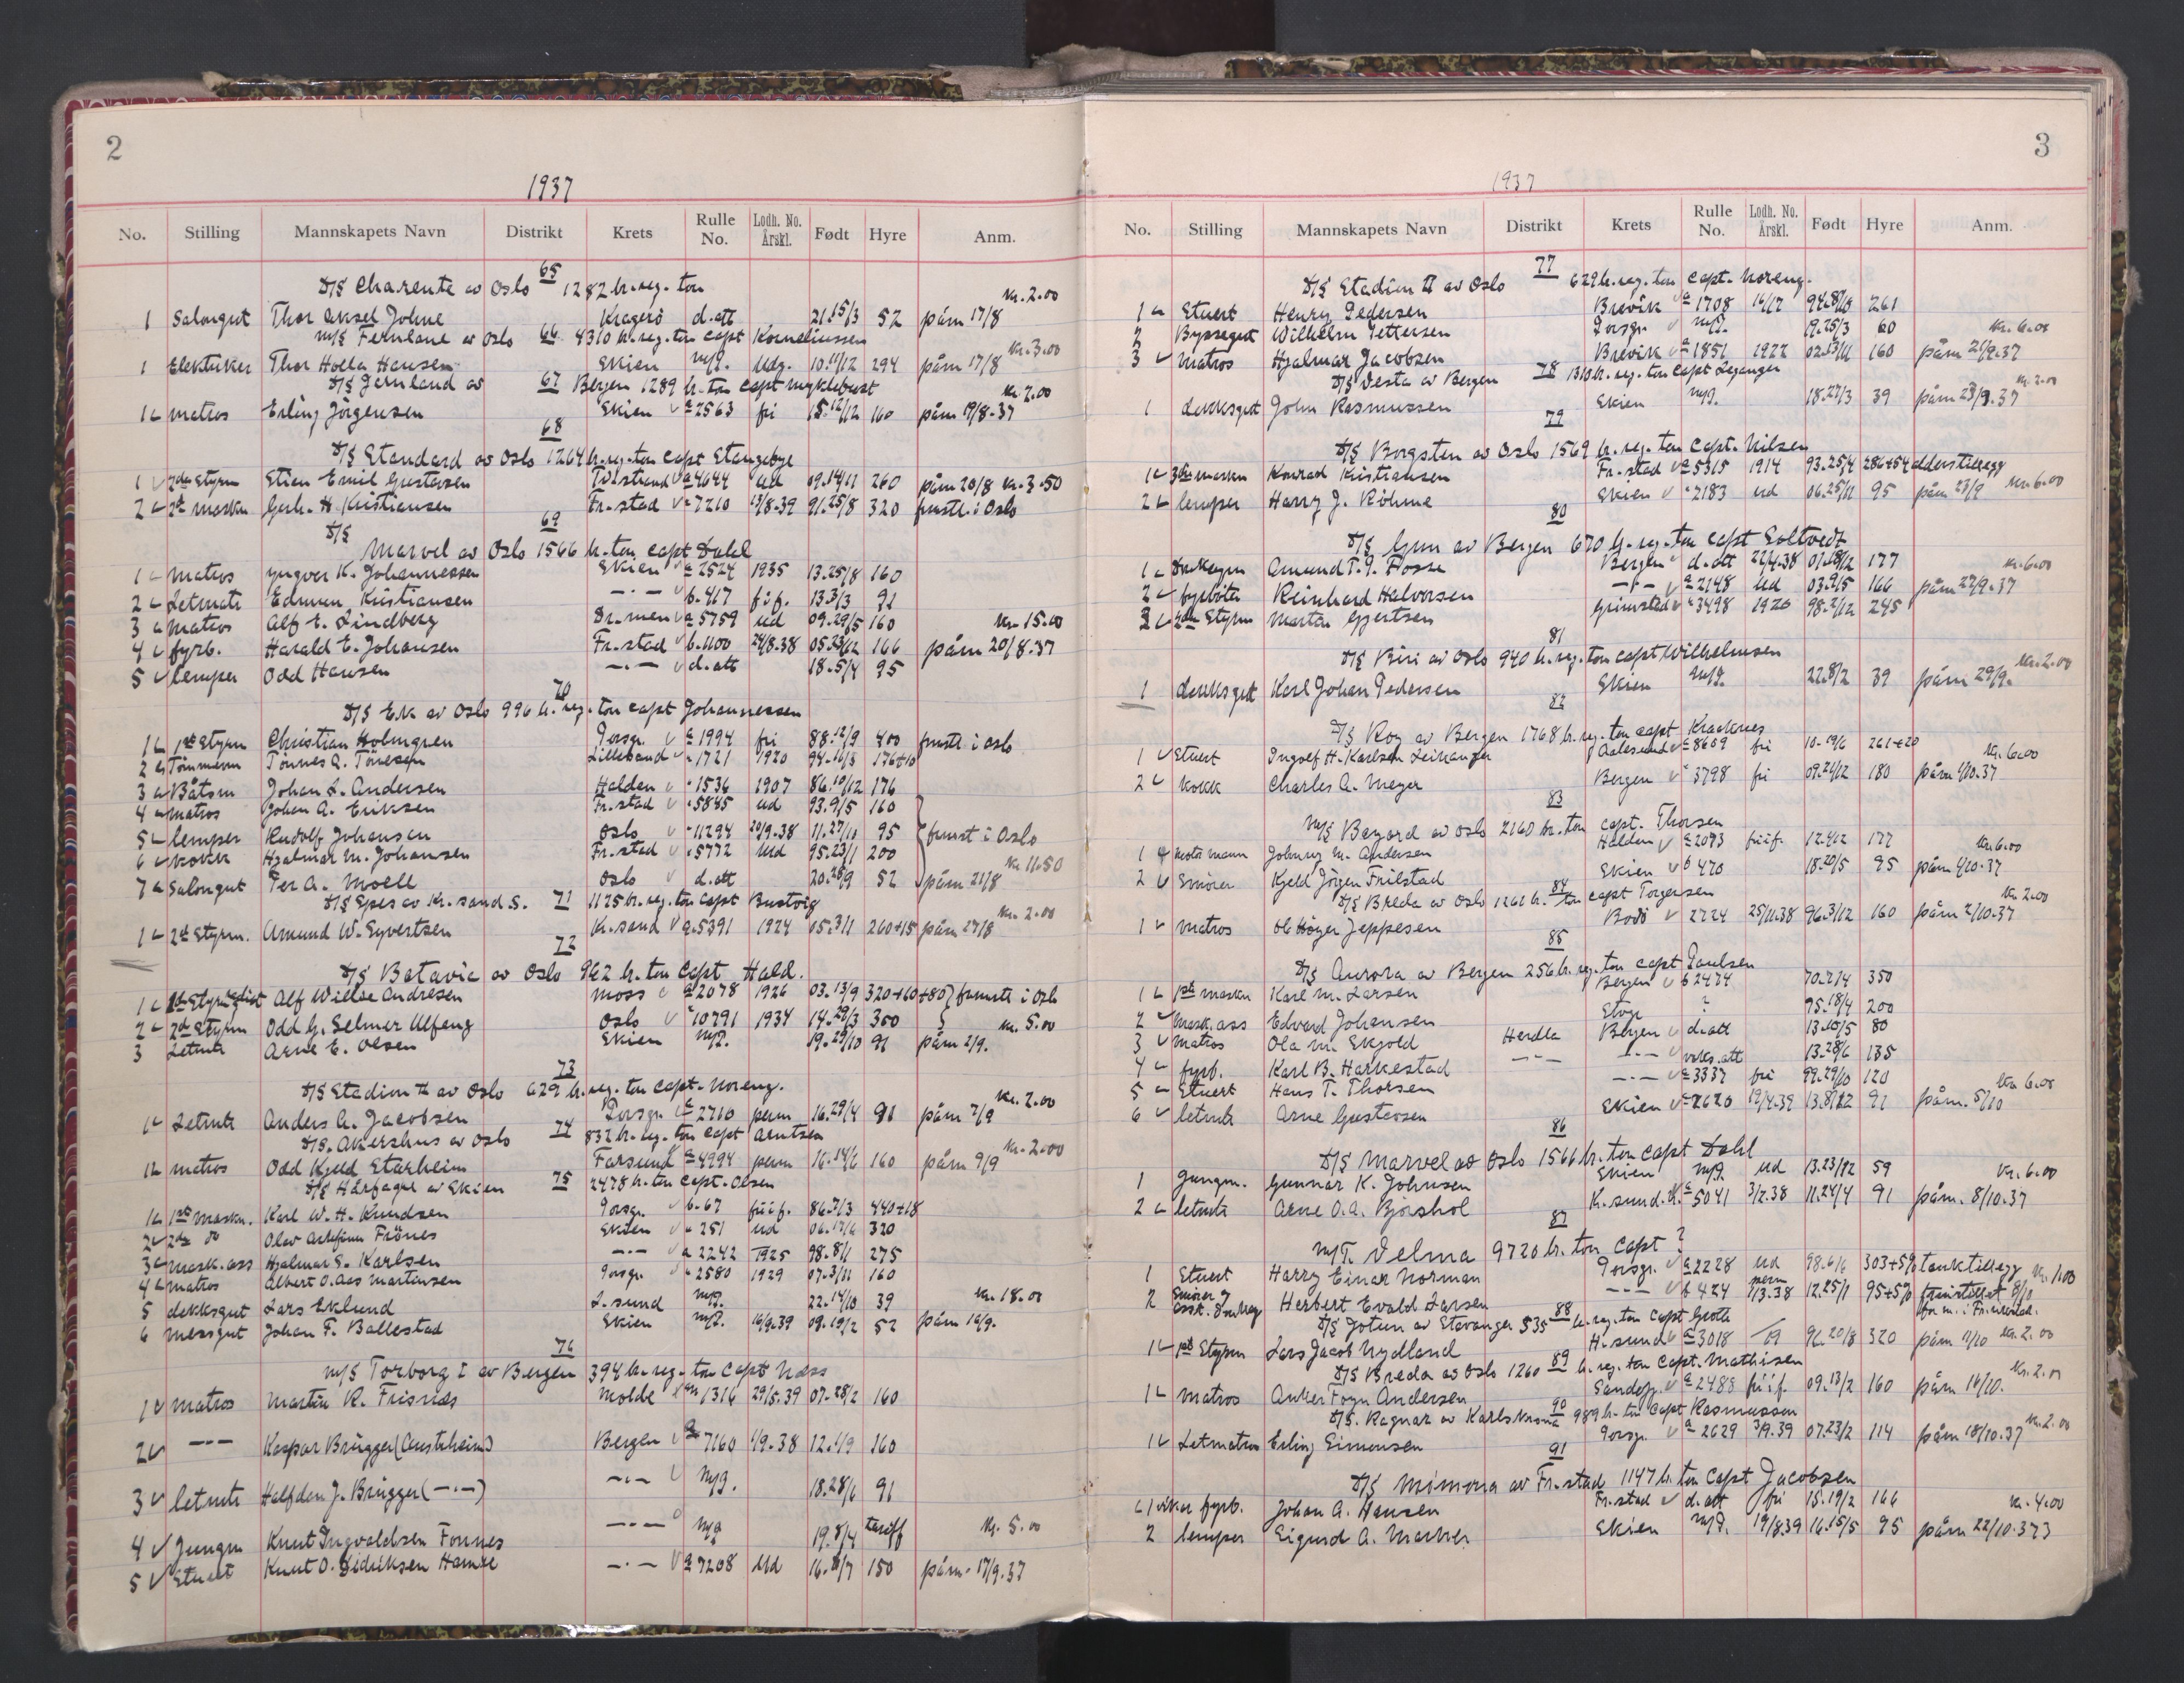 2
1937
No. Stilling Mannskapets Navn Distrikt Krets Rulle No. Lodh. No. Årskl. Født Hyre Anm.
65
D/S Charente av Oslo 1282 br.reg. ton
1 Salongut Thor Aksel Johne Kragerö d.att 21.15/3 52 påm 17/8 kr. 2.00
M/S Fernlane av Oslo 66 4310 br.reg. ton capt Korneliussen
1 Elektriker Thor Holla Hansen Skien M/P. Udg. 10.11/12 294 påm 17/8 kr. 3.00
D/S Jernland av 67 Bergen 1289 br. ton capt Myklebust
1 matros Erling Jörgensen Skien a 2563 fri 15.12/12 160 påm 19/8-37 kr. 2.00
68
D/S Standard av Oslo 1264 br.reg. ton capt Stangebye
1 2den Styrm Stian Emil Gustavsen a 4644 ud 09.14/11 260 påm 20/8 kr. 3.50
2 2d maskn Gerh. H. Kristiansen Fr.stad 7210 13/8-39 91.25/8 320 pmstr. i Oslo
69
D/S
Marvel av Oslo 1566 br. ton capt Dahl
1 Matros Yngvar K. Johannessen Skien a 2524 1935 13.25/8 160
2 Letmatr Edmun Kristiansen -"- b. 417 f.i.f. 13.3/3 91
3 Matros Alf E. Lindberg Dr.men a 5759 ud 09.29/5 160 kr 15.00
4 fyrb. Harald E. Johansen Fr.stad b. 1100 24/8.38 166 påm 20/8.37
5 lemper Odd Hansen -"- d. att 18.5/4 95
70
D/S Ek av Oslo 996 br.reg. ton capt Johannessen
1 1st Styrm Christian Holmgren Porsgr. a 1994 fri 88.12/9 400 pmstr. i Oslo
2 Tömmerm Tönnes A. Tönesen Lillesand 1721 1920 94.16/3 176+10
3 Båtsm Johan L. Andersen Halden 1536 1907 86.19/12 176
4 Matros Johan A. Eriksen Fr.stad 5845 ud 93.9/5 160
5 lemper Rudolf Johansen Oslo 11294 20/9.38 11.27/10 95 pmst i Oslo
6 kokk Hjalmar M. Johansen Fr.stad 5772 Ud 95.23/1 200
7 Salongut Per A. Moell Oslo d. att 20.28/9 52 påm 21/8 kr 11.50
D/S Spes av Kr.sand S. 71 1125 br.reg. ton capt Bustvig
1 2d Styrm. Amund W. Syvertsen Kr.sand a. 5391 1924 05.3/1 260+15 påm 27/8 kr. 2.00
72
D/S Batavia av Oslo 962 br. ton Capt Hald.
1 Alf Wilse Andresen Moss a 2078 1926 03.13/9 320+60+80 pmstr i Oslo
2 2d Styrm Odd G. Selmer Ulfeng Oslo 10791 1934 14.29/3 300
3 Letmtr Arne E. Olsen Skien M/P. 19.29/10 91 påm 2/9. kr. 5.00
73
D/S Stadion II av Oslo 629 br.reg. ton Capt. Noreng.
1 Letmtr Anders A. Jacobsen Porsgr. a 2710 perm 16.29/4 91 påm 7/9 kr. 2.00
D/S. Akershus av Oslo 74 832 br.reg. ton capt Arntsen
1 matros Odd Kjeld Starheim Farsund a 4994 perm 16.14/6 160 påm 9/9 kr. 2.00
D/S Hårfagre av Skien 75 2478 br. ton capt. Olsen
1 1st Maskn. Karl W. H. Knudsen Porsgr. b. 67 f.i.f. 86.7/3 440+18
2 2de do Olav Arnfinn Frönes Skien a 251 ud 06.17/6 320
3 mask. ass Hjalmar S. Karlsen -"- a 2242 1925 98.8/1 275
4 matros Albert O. Aas Martinsen Porsgr. 2580 1929 07.3/11 160
5 dekksgut Lars Eklund L.sund M/P. 22.14/10 39 kr. 18.00
6 messgut Johan F. Ballestad Skien M/P. 16/9.39 09.19/2 52 påm 16/9.
76
M/S Torborg I av Bergen 394 br.reg. ton Capt Næss
1 matros Martin R. Frisnes Molde 1316 29/5.39 07-28/2 160
2 -"- Kaspar Brügger (Austrheim) Bergen a 7160 1/9.38 12.1/9 160
3 letmtr Halfdan J. Brügger (-"-) -"- M/P. 18.28/6 91
4 Jungm Knut Ingvaldsen Fonnes -"- M/P 19.8/4 tariff kr. 5.00
5 Stuert Knut O. Didriksen Hamre -"- a 7208 Ud 150 påm. 17/9.37
3
1937
No. Stilling Mannskapets Navn Distrikt Krets Rulle No. Lodh. No. Årskl. Født Hyre Anm.
77
D/S Stadion II av Oslo 629 br.reg. ton Capt. Noreng.
1 Stuert Henry Pedersen Brevik a 1708 16/17 261
2 Byssegut Wilhelm Pettersen Porsgr. M/P. 19.25/3 60 kr. 6.00
3 Matros Hjalmar Jacobsen Brevik a 1851 1922 02.13/11 160 påm 21/9.37
D/S Vesta av Bergen 78 1310 br.reg. ton capt Leganger
1 dekksgut John Rasmussen Skien M/P. 18.27/3 39 påm 23/9.37 kr. 2.00
79
D/S Borgsten av Oslo 1569 br.reg. ton Capt. Nilsen
1 3die maskn Konrad Kristiansen Fr.stad a 5315 1914 93.25/4 286+54 alderstillegg
2 lemper Harry J. Röhme Skien 2183 ud 06.25/11 95 påm 23/9 kr. 6.00
80
D/S Gun av Bergen 670 br.reg. ton capt Soltvedt
1 Amund T. J. Fosse Bergen d. att 22/4.38 07.18/12 177 kr. 6.00
2 fyrböter Reinhard Halvorsen -"- a 2148 Ud 03.9/5 166 påm 27/9.37
3 2den Styrm Martin Gjertsen Grimstad a 3498 1920 98.2/12 245
81
D/S Biri av Oslo 940 br.reg. ton capt Wilhelmsen
1 dekksgutt Karl Johan Pedersen Skien M/P. 22.8/2 39 påm 29/9. kr. 2.00
82
D/S Roy av Bergen 1768 br.reg. ton capt Kraaknes
1 Stuert Ingolf H. Karlsen Leihanger Aalesund a 8609 fri 10-19/6 261+20
2 Kokk Charles A. Meyer Bergen 3798 fri 09.24/12 180 påm 1/10.37 kr. 6.00
83
M/S Bayard av Oslo 2160 br. ton capt. Thorsen
1 Motormann Johnny M. Andersen Halden a 2093 f.i.f. 12.4/12 177 kr. 6.00
2 Smörer Kjeld Jörgen Frilstad Skien b 470 18.20/5 95 påm 1/10.37
D/S Breda av Oslo 1261 br. 84 ton capt Torgersen
1 Matros Ole Höyer Jeppesen Bodö 2724 25/11.38 96.3/12 160 påm 2/10.37 kr 2.00
85
D/S Aurora av Bergen 256 br.reg. ton capt Paulsen
1 1st maskn Karl M. Larsen Bergen b 2474 70.7/4 350
2 Mask. ass Edvard Johansen ? 95.18/4 200
3 Matros Ola M. Skjold Herdla Bergen d. att 13.10/5 80
4 fyrb. Karl B. Harkestad -"- -"- 13.28/6 135
5 Stuert Hans T. Thorsen -"- a 3337 fri 99.29/10 120 kr 6.00
6 letmtr Arne Gustavsen Skien a 2620 19/4.39 13.8/12 91 påm. 5/10
86
D/S Marvel av Oslo 1566 br. ton capt Dahl
1 Jungm. Gunnar K. Johnsen Skien M/P. ud 13.23/12 59 kr. 6.00
2 letmtr Arne O. A. Bjørshol K.sund.N. a 5041 3/7.38 11.24/4 91 påm. 8/10.37
87
M/T. Velma 9720 br. ton Capt ?
1 Stuert Harry Einar Norman Porsgr. a 2228 ud 98.6/6 303+5% tanktillegg kr. 1.00
2 Smörer og Herbert Evald Larsen -"- b 424 perm 1/3.38 12.25/1 95+5%
D/S Jotun av Stavanger 535 88 br.reg. ton capt Groth
1 1st Styrm Lars Jacob Nydland H.sund a 3018 320 påm 11/10 kr. 2.00
D/S Breda av Oslo 1260 89 br.reg. ton Capt. Mathisen
1 Matros Anker Foyn Andersen Sandefj. a 2488 f.i.f. 09.13/2 160 påm 16/10. kr. 2.00
D/S. Ragnar av Karlskrona 90 989 br. ton capt Rasmussen
1 Letmatros Erling Simonsen Porsgr. a 2629 3/9.39 07.23/2 114 påm 18/10.37 kr. 2.00
91
D/S Mimona av Fr.stad 1147 br. ton Capt Jacobsen
1 fyrb. Johan A. Hansen Fr.stad d. att fri 15.19/2 166 kr. 4.00
2 lemper Sigurd A. Marker Skien M/P. 19/8.39 16.15/5 95 påm 22/10.373